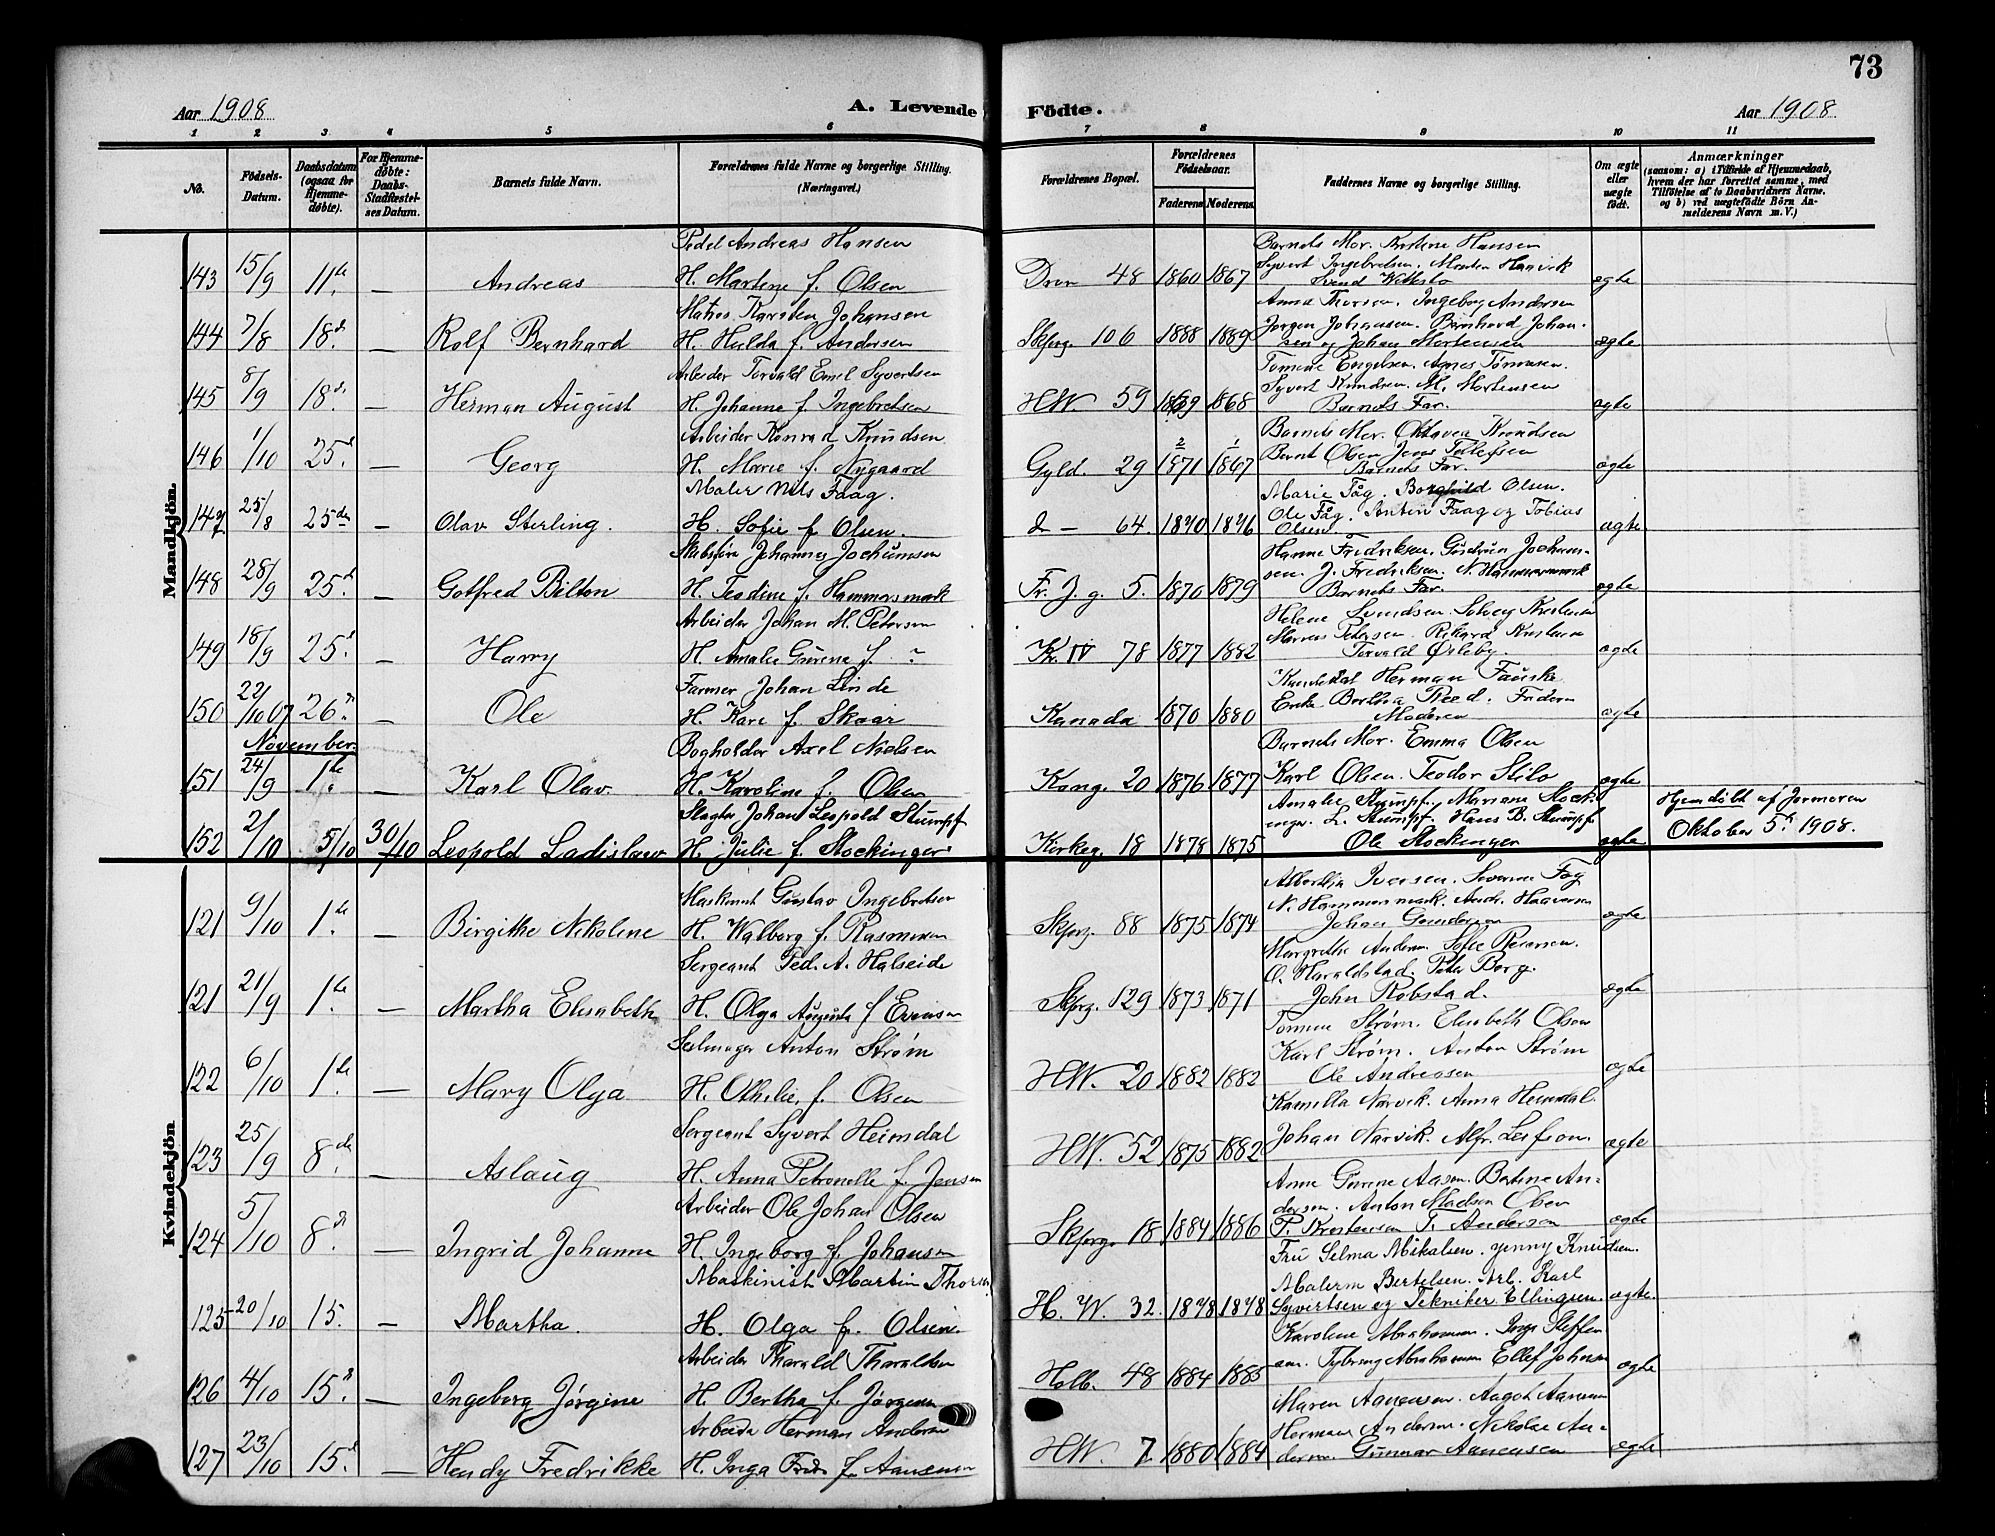 73
Aar 1908. A. Levende Födte. Aar 1908.
1 2 3 4 5 6 7 8 9 10 11
No. Födsels-Datum. Daabsdatum (ogsaa for Hjemme-døbte). For Hjemme-døbte: Daabs-Stadfæstel-ses Datum. Barnets fulde Navn. Forældrenes fulde Navne og borgerlige Stilling. (Næringsvei.) Forældrenes Bopæl. Forældrenes Födselsaar. Faderens Moderens. Faddernes Navne og borgerlige Stilling. Om ægte eller uægte födt. Anmærkninger (saasom: a) i Tilfælde af Hjemmedaab, hvem der har forrettet samme, med Tilföielse af to Daabsvidners Navne. og b) ved uægtefödte Börn An-melderens Navn m. V.)
Mandkjön.
Pedel Andreas Hansen Barnets Mor. Kristine Hansen
143 15/9 11te — Andreas H. Martene f. Olsen Dron 48 1860 1867 Syvert Ingebretsen. Morten Haavik Svend ægte
Matros Karsten Johansen Anna Thorsen. Ingeborg Andersen
144 7/8 18d. — Rolf Bernhard H. Hulda f. Andersen Skferg. 106 1888 1889 Jørgen Johansen. Bernhard Johan-sen og Johan Mortensen ægte
Arbeider Torvald Emil Syvertsen Tomine Engelsen. Agnes Tønnesen.
145 8/9 18d. — Herman August H. Johanne f. Ingebretsen HW. 59 1869 1868 Syvert Knudsen. M. Mortensen Barnets Far. ægte
Arbeider Konrad Knudsen Barnets Mor. Oktavia Knudsen
146 1/10 25d. — Georg H. Marie f. Nygaard Gyld. 29 2/1871 1/1867 Bernt Olsen Jens Tellefsen Barnets Far. ægte
Maler Nils Faag. Marie Fåg. Borghild Olsen.
147 25/8 25de — Olav Sterling. H. Sofie f. Olsen. d — 64 1870 1876 Ole Fåg. Anton Faag og Tobias Olsen. ægte
Skibsfører Johannes Jochumsen Hanne Fredriksen. Gudrun Jochum-
148 28/9 25d. — Gotfred Bilton H. Teodine f. Hammersmark Fr. J. g. 5. 1870 1879 sen. J. Fredriksen. N. Hammersmark Barnets Far. ægte
Arbeider Johan M. Petersen Helene Svendsen. Solvei Kristensen
149 18/9 25d. — Harry H. Amalie Gurine f. ? Kr. IV 78 1877 1882 Marcus Petersen. Rikard Kristensen Torvald Ørleby. ægte
Farmer Johan Linde Herman Fauske
150 22/10 07 26d. — Ole H. Kari f. Skaar Kanada 1870 1880 Enke Bertha Reed. Faderen Moderen ægte
November.
Bogholder Axel Nielsen Barnets Mor. Emma Olsen
151 24/9 1te. — Karl Olav. H. Karoline f. Olsen Kong. 20 1876 1877 Karl Olsen. Teodor Stilo ægte
Slagter Johan Leopold Stumpf Amalie Stumpf. Mariane Stock-
152 2/10 5/10 30/10 Leopold Ladislaus H. Julie f. Stockinger Kirkeg. 18 1878 1875 inger. L. Stumpf. Hans B. Stumpf Ole Stockinger ægte Hjemdøbt af Jormoren Oktober 5te 1908.
Kvindekjön
Maskinist Gustav Ingebretsen Albertha Iversen. Severine Fåg
121 9/10 1te. — Birgithe Nikoline H. Walborg f. Rasmussen Skferg. 88 1875 1874 N. Hammersmark. Andr. Haavorsen Johan Gundersen ægte
Sergeant Ped. A. Halseide Margrethe Andersen. Sofie Reiersen.
121 21/9 1te. — Martha Elisabeth H. Olga Augusta f Evensen Skferg. 129 1873 1871 O. Haraldstad. Peter Borg. John Robstad. ægte
Seilmager Anton Strøm Tomine Strøm. Elisabeth Olsen
122 6/10 1te — Mary Olga H. Othilie, f. Olsen HW. 20 1882 1882 Karl Strøm. Anton Strøm Ole Andreasen ægte
Sergeant Syvert Heimdal Kamilla Narvik. Anna Heimdal.
123 25/9 8de. — Aslaug H. Anna Petronelle f. Jensen HW. 52 1875 1882 Johan Narvik. Alfr. ægte
Arbeider Ole Johan Olsen Anne Gurine Aasen. Bertine An-
124 5/10 8d. — Ingrid Johanne H. Ingeborg f. Johansen Skferg. 18 1884 1886 dersen. Anton Madsen Olsen P. Kristensen T. Andersen ægte
Maskinist Martin Thorsen Fru Selma Mikalsen. Jenny Knudsen.
125 20/10 15. — Martha. H. Olga f. Olsen. H. W. 32. 1878 1878 Malerm Bertelsen. Arb. Karl Syvertsen og Tekniker Ellingsen. ægte.
Arbeider Tharald Tharaldsen Karoline Abrahamsen. Inga Steffen
126 4/10 15d. — Ingeborg Jørgine H. Bertha f. Jørgensen Holb. 48 1884 1885 sen. Tybring Abrahamsen Ellef Johnsen ægte
Arbeider Herman Andersen Maren Aanensen. Aagot Aanensen
127 23/10 15d. — Hendy Fredrikke H. Inga f. Aanensen HW. 7 1880 1884 Herman Andersen. Nikolai An-dersen. Gunnar Aanensen ægte